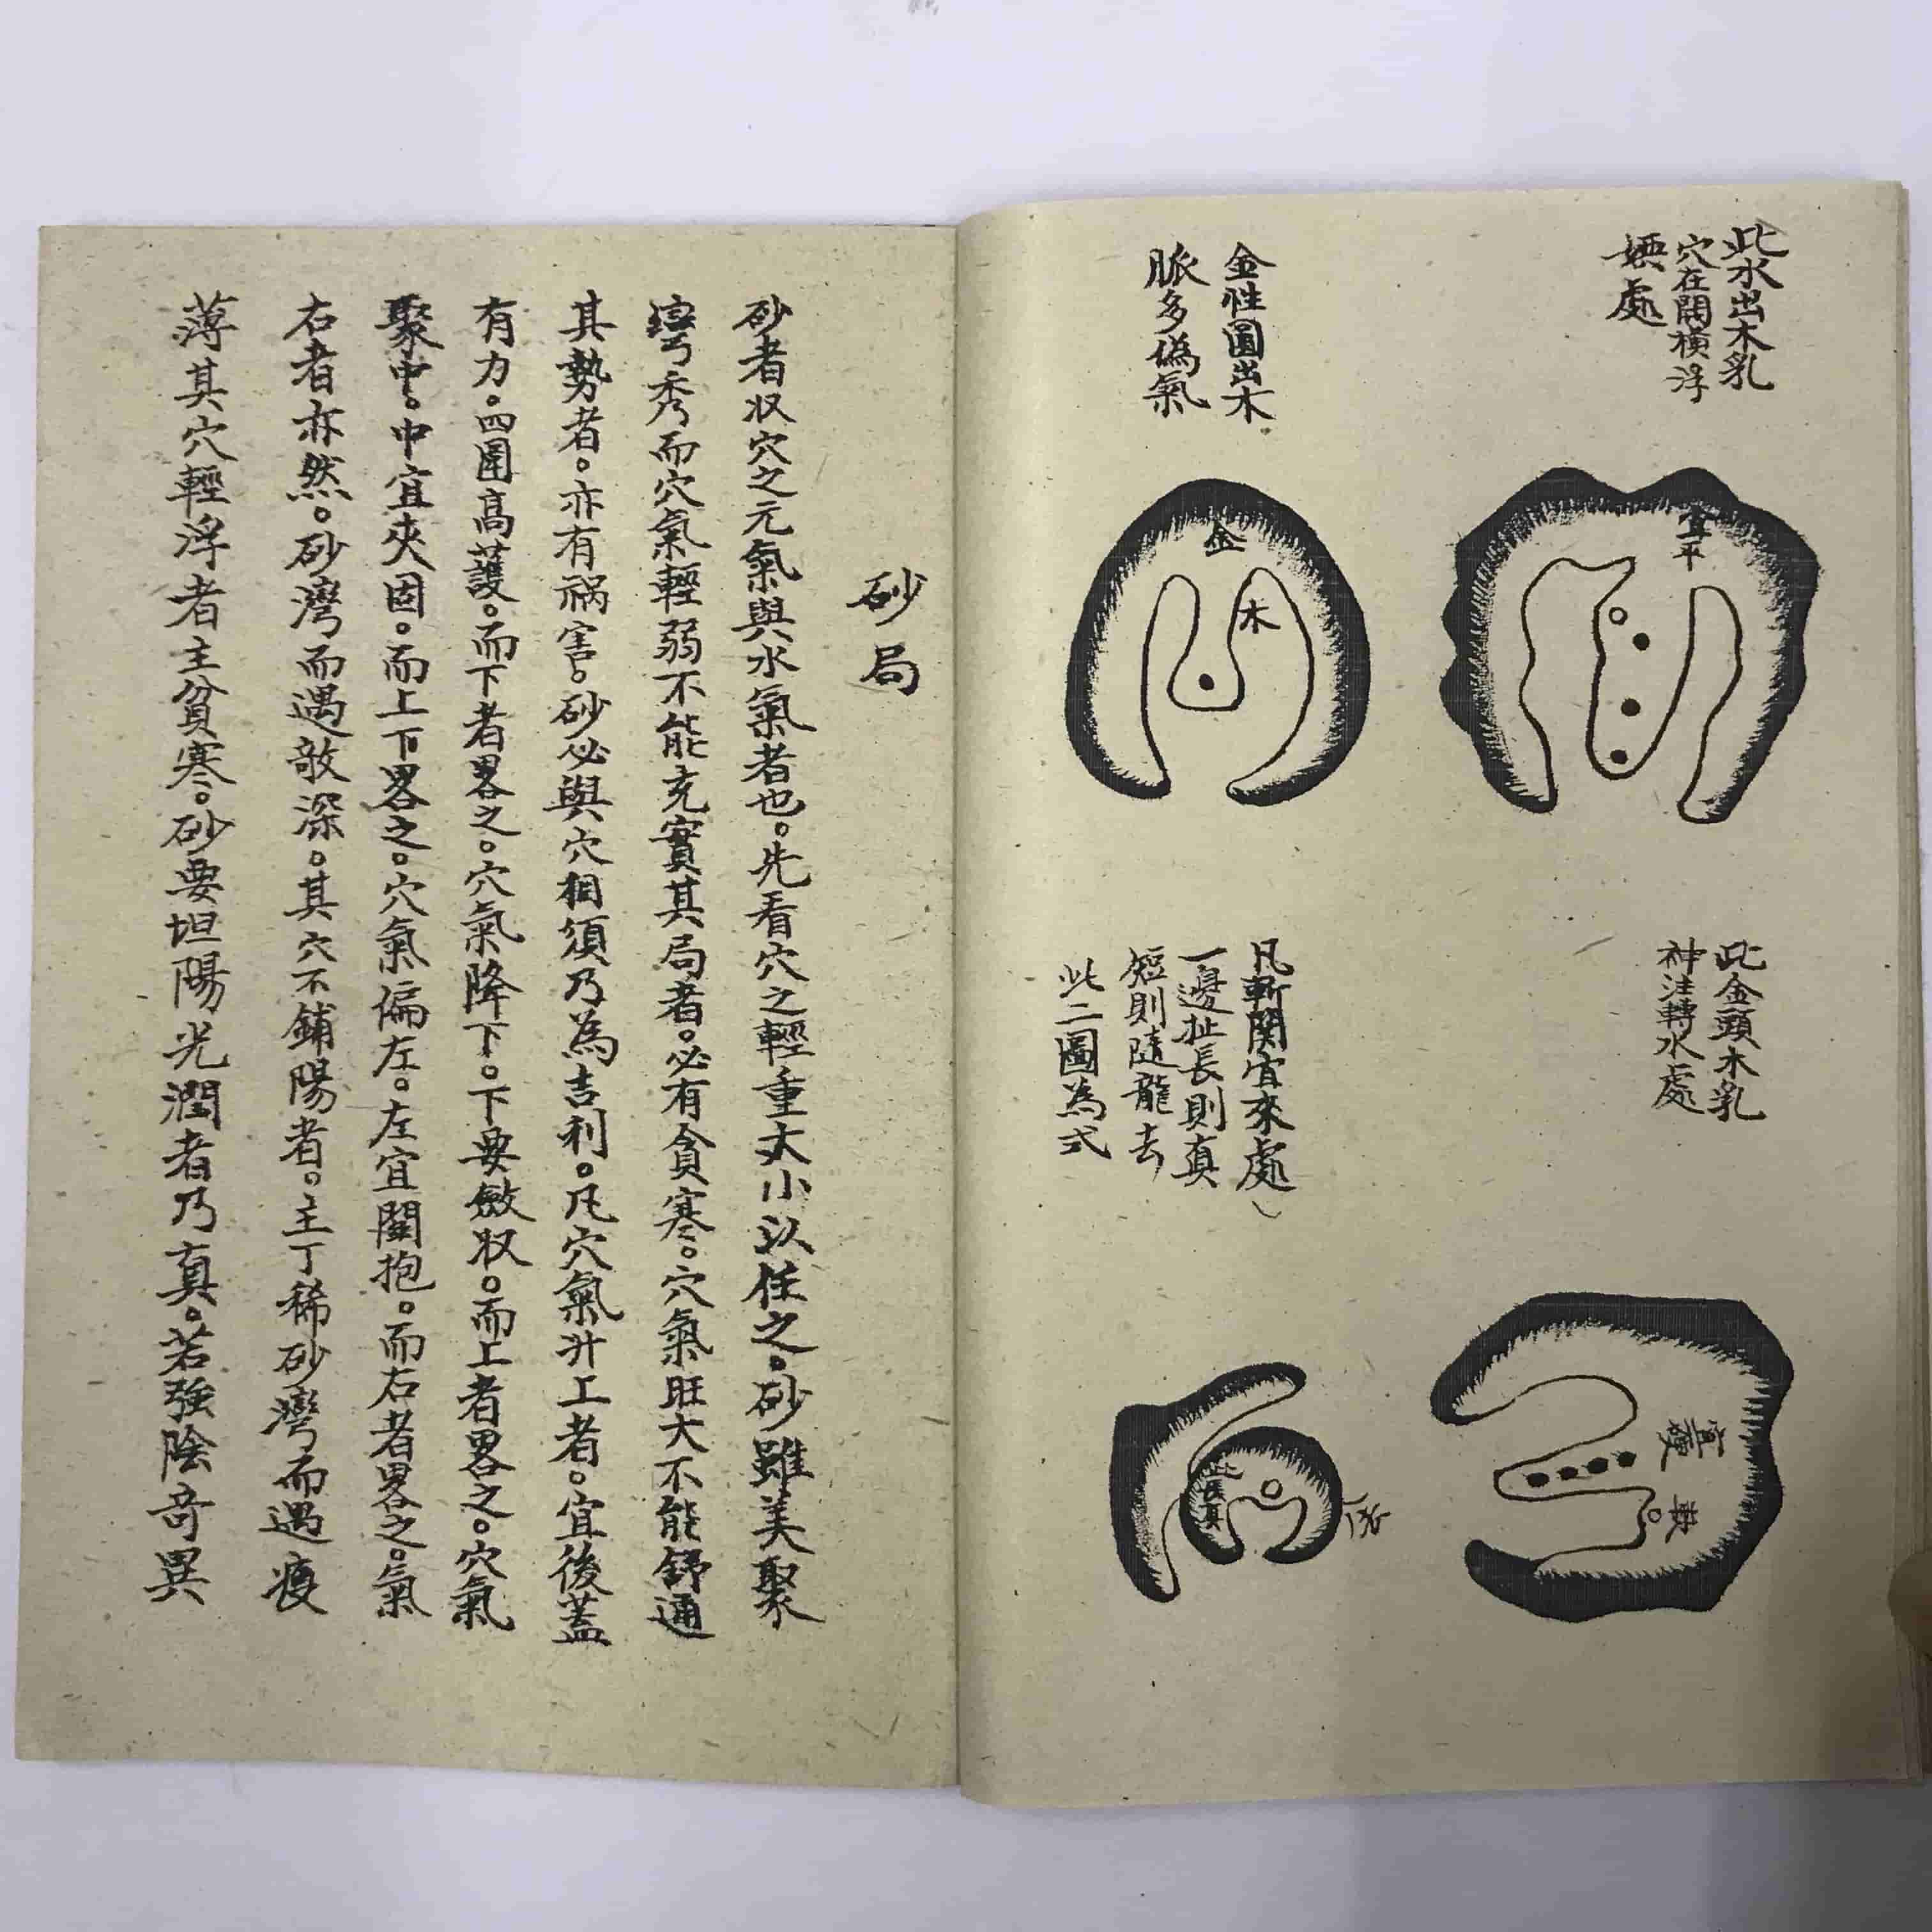 此水出木乳
穴在闊橫浮
㛐處
宜平
金性圓出木
脈多偽氣
金
木
此金頭木乳
神注轉水處
宜硬
凡斬関宜來處
一邊扯長則真
短則隨龍去
此二圖為式
此長真
砂局
砂者収穴之元氣與水氣者也。先看穴之輕重大小以任之。砂雖美聚
彎秀而穴氣輕弱不能充實其局者。必有貪寒。穴氣旺大不能舒通
其勢者。亦有禍害。砂必與穴相須乃為吉利。凡穴氣升上者。宜後蓋
有力。四圍高護。而下者畧之。穴氣降下。下要斂収。而上者畧之。穴氣
聚中。中宜夾固。而上下畧之。穴氣偏左。左宜闗抱。而右者畧之。氣
右者亦然。砂灣而遇敧深。其穴不鋪陽者。主丁稀砂灣而遇瘦
薄其穴輕浮者主貧寒。砂要坦陽光潤者乃真。若強陰奇異